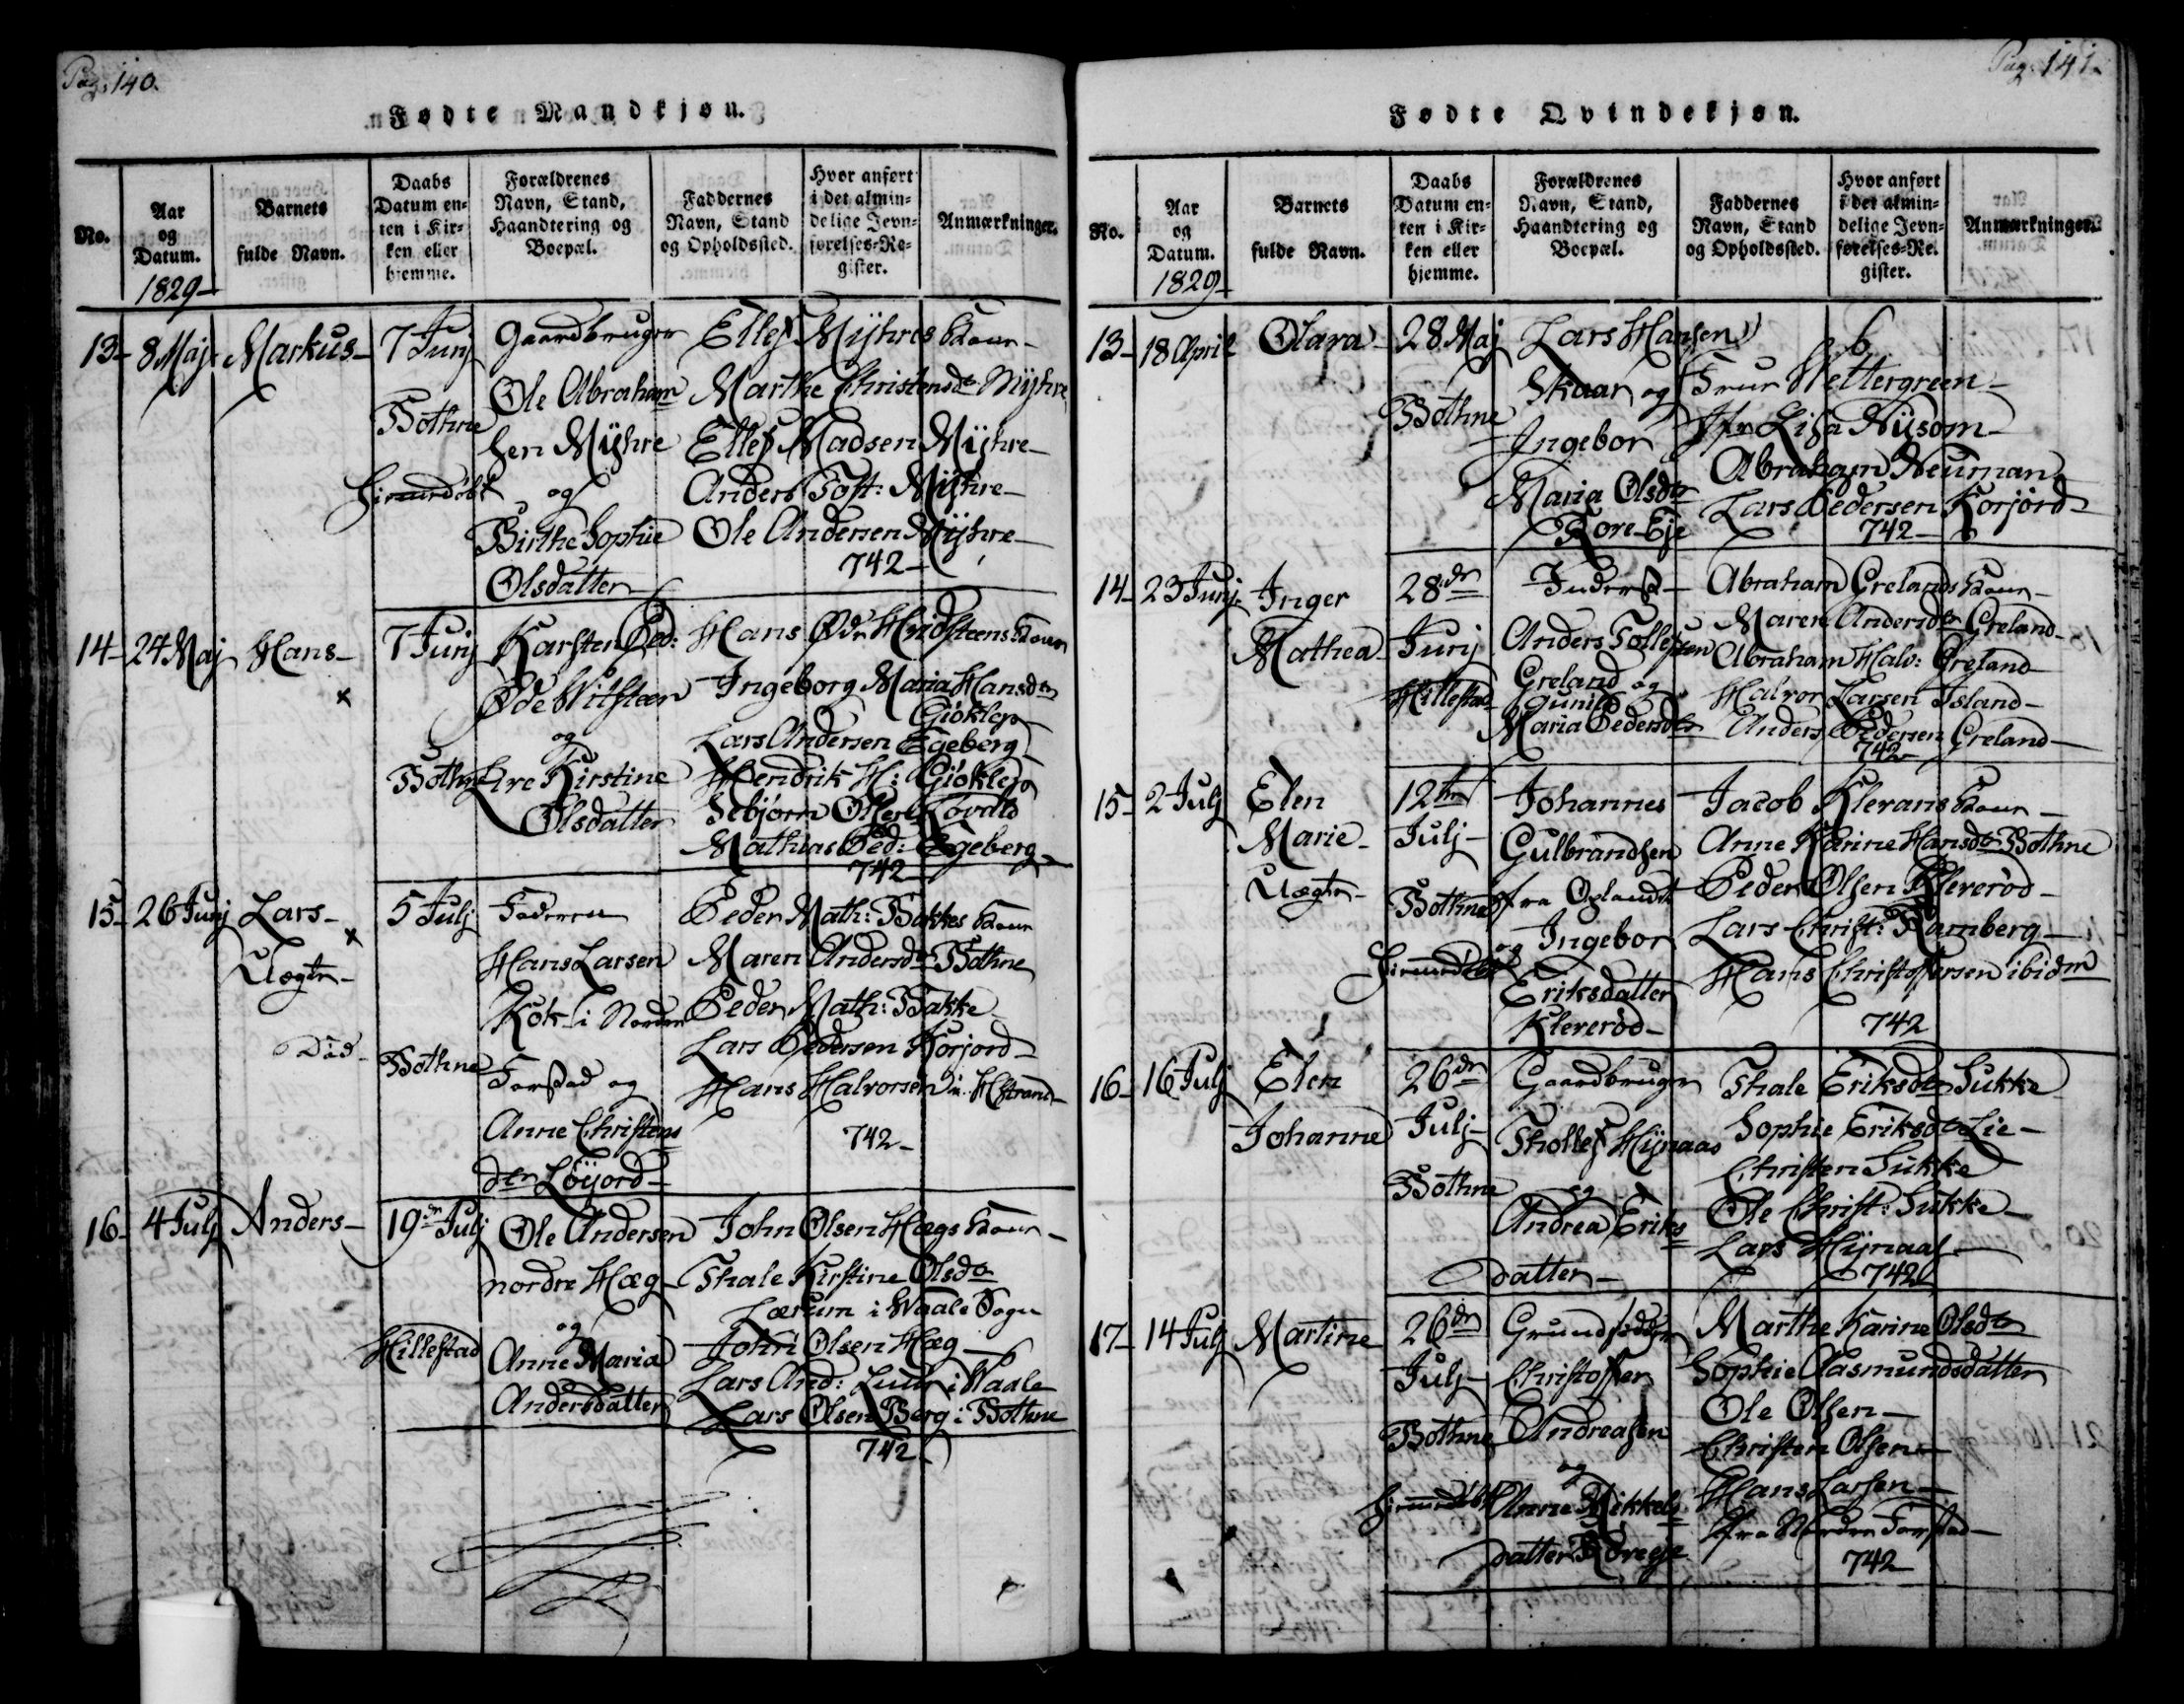 Pag. 140.
Fødte Mandkjøn.
No.
Aar og Datum.
Barnets fulde Navn.
Daabs Datum enten i Kirken eller hjemme.
Forældrenes Navn, Stand, Haandtering og Boepæl.
Faddernes Navn, Stand og Opholdssted.
Hvor anført i det almindelige Jevnførelses-Register.
Anmærkninger.
1829
13 8 Maj Markus 7 Junij
Bothne
Hiemmedøbt
Gaardbruger
Ole Abraham
sen Myhre
og
Birthe Sophie
Olsdatter
Ellef Myhres Kone
Marthe Christensdr Myhre
Ellef Madsen Myhre
Anders Toft: Myhre
Ole Andersen Myhre
742
14 24 Maj Hans 7 Junij
Bothne
Karsten Ped:
Øde Hvitsteen
og
Kirstine
Olsdatter
Hans Hvidsteens Kone
Ingeborg Maria Hansdr
Giøklep
Lars Andersen Egeberg
Hendrik H: Giøklep
Mathias Ped: Egeberg
742
15 26 Junij Lars
Uægte
Død
5 Julj
Bothne
Faderen
Hans Larsen
i Nordre
og
Anne Christens
dtr Løyjord
Peder Math: Bakkes Kone
Maren Andersdr Bothne
Peder Math: Bakke
Lars Pedersen Korjord
Hans Halvorsen
742
16 4 Julj Anders 19de Julj
Hillestad
Ole Andersen
nordre Hæg
og
Anne Maria
Andersdatter
John Olsen Hægs Kone
Thale Kirstine Olsdr
i Waale Sogn
John Olsen Hæg
Lars And: i Waale
Lars Olsen Berg i Bothne
742
Pag. 141.
Fødte Qvindekjøn.
No.
Aar og Datum.
Barnets fulde Navn.
Daabs Datum enten i Kirken eller hjemme.
Forældrenes Navn, Stand, Haandtering og Boepæl.
Faddernes Navn, Stand og Opholdssted.
Hvor anført i det almindelige Jevnførelses-Register.
Anmærkninger.
1829
13 18 April Olava 28 Maj
Bothne
Lars Hansen
Skaar og
Ingebor
Maria Olsdr
Eje
6
Frur Wettergreen
Jfr Lisa Nysom
Abraham Neuman
Lars Pedersen Korjord
742
14 23 Junij Inger
Mathea
28de
Junij
Hillestad
Inderst
Anders Tollefsen
Greland og
Gunild
Maria Pedersdr
Abraham Grelands Kone
Maren Andersdr Greland
Abraham Halv: Greland
Halvor Larsen Island
Anders Pedersen Greland
742
15 2 Julj Elen
Marie
Uægte
12te
Julj
Bothne
Hiemmedøbt
Johannes
Gulbrandsen
fra Oplandet
og Ingebor
Eriksdatter
Klererød
Jacob Klerans Kone
Anne Karine Hansdr Bothne
Peder Olsen Klererød
Lars Christ: Ramberg
Hans Christoffersen ibidm
742
16 16 Julj Elen
Johanne
26de
Julj
Bothne
Gaardbruger
Thollef Hynaas
og
Andrea Eriks
datter
Thale Eriksdr Sukke
Sophie Eriksdr Lie
Christen Sukke
Ole Christ: Sukke
Lars Hynaas
742
17 14 Julj Martine 26de
Julj
Bothne
Hiemmedøbt
Christoffer
Andreasen
og
Anne Mikkels
datter
Marthe Karine Olsdr
Sophie Aasmundsdatter
Ole Olsen
Christen Olsen
Hans Larsen
fra Nordre
742